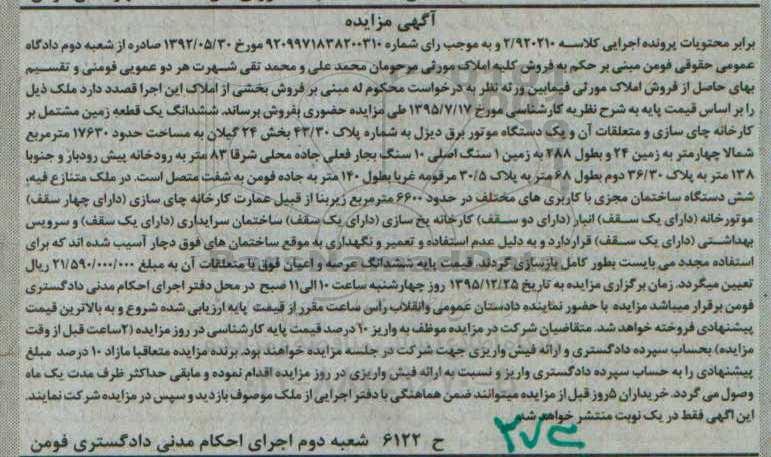 آگهی مزایده
برابر محتویات پرونده اجرایی کلاسه ۲/۹۲۰۲۱۰ و به موجب رای شماره ۹۲۰۹۹۷۱۸۳۸۲۰۰۳۱۰ مورخ ۱۳۹۲/۰۵/۳۰ صادره از شعبه دوم دادگاه
عمومی حقوقی فومن مبنی بر حکم به فروش کلیه املاک مورثی مرحومان محمد علی و محمد تقی شهرت هر دو عمویی فومنی و تقسیم
بهای حاصل از فروش املاک مورثی فیمابین ورثه نظر به درخواست محکوم له مبنی بر فروش بخشی از املاک این اجرا قصدد دارد ملک ذیل
را بر اساس قیمت پایه به شرح نظریه کارشناسی مورخ ۱۳۹۵/۷/۱۷ طی مزایده حضوری بفروش برساند. ششدانگ یک قطعه زمین مشتمل بر
کارخانه چای سازی و متعلقات آن و یک دستگاه موتور برق دیزل به شماره پلاک ۴۳/۳۰ بخش ۲۴ گیلان به مساحت حدود ۱۷۶۳۰ مترمربع
شمالا چهارمتر به زمین ۲۴ و بطول ۲۸۸ به زمین ۱ سنگ اصلی ۱۰ سنگ بجار فعلی جاده محلی شرقا ۸۳ متر به رودخانه پیش رودبار و جنوبا
۱۳۸ متر به پلاک ۳۶/۳۰ دوم بطول ۶۸ متر به پلاک ۳۰/۵ مرقومه غربا بطول ۱۴۰ متر به جاده فومن به شفت متصل است. در ملک متنازع فیه،
شش دستگاه ساختمان مجزی با کاربری های مختلف در حدود ۶۶۰۰ مترمربع زیربنا از قبیل عمارت کارخانه چای سازی (دارای چهار سقف)
موتورخانه (دارای یک سقف) انبار (دارای دو سقف) کارخانه یخ سازی (دارای یک سقف) ساختمان سرایداری (دارای یک سقف) و سرویس
بهداشتی (دارای یک سقف) قراردارد و به دلیل عدم استفاده و تعمیر و نگهداری به موقع ساختمان های فوق دچار آسیب شده اند که برای
استفاده مجدد می بایست بطور کامل بازسازی گردند. قیمت پایه ششدانگ عرصه و اعیان فوق با متعلقات آن به مبلغ ۲۱/۵۹۰/۰۰۰/۰۰۰ ریال
تعیین میگردد. زمان برگزاری مزایده به تاریخ ۱۳۹۵/۱۲/۲۵ روز چهارشنبه ساعت ۱۰ الی ۱۱ صبح در محل دفتر اجرای احکام مدنی دادگستری
فومن برقرار میباشد مزایده با حضور نماینده دادستان عمومی وانقلاب راس ساعت مقرر از قیمت پایه ارزیابی شده شروع و به بالاترین قیمت
پیشنهادی فروخته خواهد شد. متقاضیان شرکت در مزایده موظف به واریز ۱۰ درصد قیمت پایه کارشناسی در روز مزایده (۲ساعت قبل از وقت
مزایده) بحساب سپرده دادگستری و ارائه فیش واریزی جهت شرکت در جلسه مزایده خواهند بود. برنده مزایده متعاقبا مازاد ۱۰ درصد مبلغ
پیشنهادی را به حساب سپرده دادگستری واریز و نسبت به ارائه فیش واریزی در روز مزایده اقدام نموده و مابقی حداکثر ظرف مدت یک ماه
وصول می گردد. خریداران ۵روز قبل از مزایده میتوانند ضمن هماهنگی با دفتر اجرایی از ملک موصوف بازدید و سپس در مزایده شرکت نمایند.
این آگهی فقط در یک نوبت منتشر خواهد شد
ح ۶۱۲۲ شعبه دوم اجرای احکام مدنی دادگستری فومن